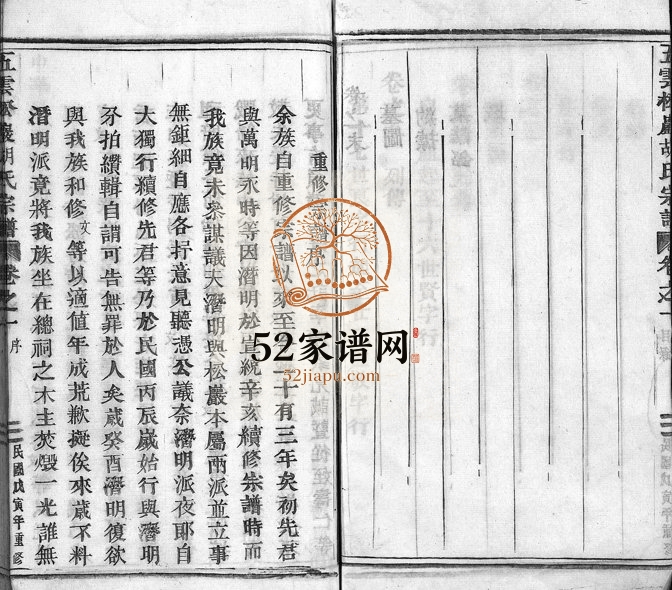 重修宗譜序
余族自重修宗譜以來至 二十有三年矣初先君
與萬明永時等因潛明於宣統辛亥續修宗譜時而
我族竟未參謀議夫潛明與松巖本屬兩派並立事
無鉅細自應各抒意見聽憑公議奈潛明派夜郎自
大獨行續修先君等乃於民國丙辰歲始行與潛明
分拍續輯自謂可告無罪於人矣歲癸酉潛明復欲
與我族和修文等以適值年成荒歉擬俟來歲不料
潛明派竟將我族坐在總祠之木主焚燬一光誰無
五雲松巖胡氏宗譜 卷之一 序
民國戊寅年重修
五雲松巖胡氏宗譜 卷之一
52家谱网
52jiapu.com